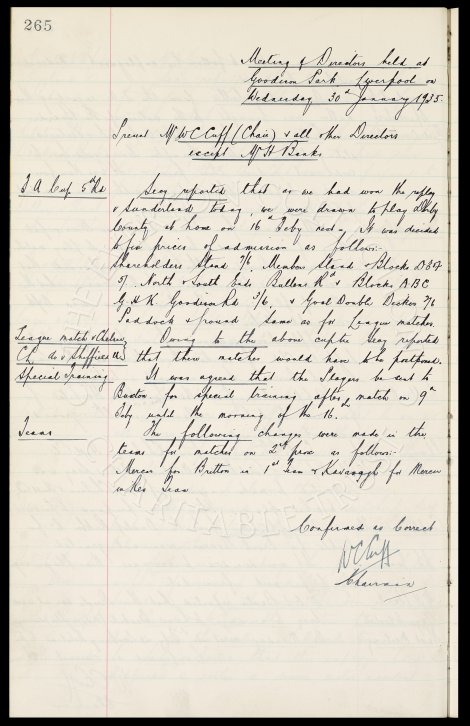 265
Meeting of Directors held at
Goodison Park Liverpool on
Wednesday 30th January 1935.
Present Mr W C Cuff (Chair) & all other Directors
except Mr H Banks
F A Cup 5th Rd
Secy reported that as we had won the replay
v Sunderland today, we were drawn to play Derby
County at home on 16th Feby next. It was decided
to fix prices of admission as follows:-
Shareholders Stand 7/6, Members Stand & Blocks D E F
5/. North & South Ends Bullens Rd & Blocks A B C
G H K Goodison Rd 3/6, & Goal Double Decker 2/6
Paddock & ground same as for League matches.
League match v Chelsea
C.L. do v Sheffield U.
Owing to the above cuptie Secy reported
that these matches would have to be postponed.
Special Training
It was agreed that the Players be sent to
Buxton for special training after match on 9th
Feby until the morning of the 16th.
Teams
The following changes were made in the
teams for matches on 2nd prox as follows:-
Mercer for Britton in 1st Team & Kavanagh for Mercer
in Res. Team
Confirmed as Correct
W C Cuff
Chairman
CHARITABLE TR